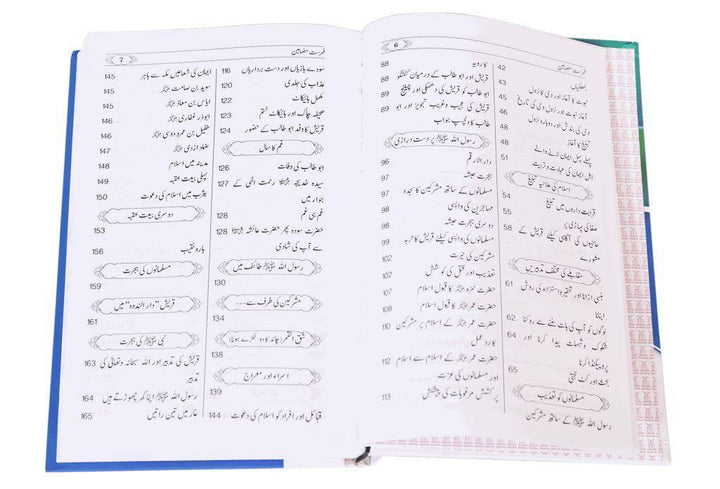 فہرست مضامین
6
جھلکیاں 42
نبوت کا آغاز اور وحی کا نزول 43
آغاز نبوت اور نزول وحی کی تاریخ
وحی کی بندش اور دوبارہ نزول
تبلیغ کا آغاز
پہلے پہل ایمان لانے والے 49
اہل ایمان کی عبادت و تربیت 51
اسلام کی علانیہ تبلیغ
قرابت داروں میں تبلیغ 54
صفا کی پہاڑی پر 55
حاجیوں کی آگاہی کیلئے قریش کے 58
مشورے
مقابلے کی مختلف تدبیریں
ہنسی اڑانا اور تحقیر و استہزاء کی روش 61
اپنانا
لوگوں کو آپ کی بات سننے سے روکنا 62
شکوک و شبہات پیدا کرنا اور 64
پروپیگنڈا کرنا
بحث اور کٹ حجتی 65
مسلمانوں کو تعذیب
رسول اللہ ﷺ کے ساتھ مشرکین
کا رویہ 88
قریش اور ابو طالب کے درمیان گفتگو 88
ابو طالب کو قریش کی دھمکی اور چیلنج 89
قریش کی عجیب و غریب تجویز اور ابو 89
طالب کا دلچسپ جواب
رسول اللہ ﷺ پر دست درازی
دار الارقم 96
مسلمانوں کے ساتھ مشرکین کا سجدہ 97
مہاجرین کی واپسی 98
دوسری ہجرت حبشہ 99
مسلمانوں کی واپسی کیلئے قریش کا حربہ 99
مشرکین کی حیرت 102
تعذیب اور قتل کی کوشش 102
حضرت حمزہ کا قبول اسلام 106
حضرت عمر کا قبول اسلام 107
حضرت عمر کے اسلام پر مشرکین 110
کا رد عمل
حضرت عمر کے اسلام سے اسلام 112
اور مسلمانوں کی عزت
پر کشش مرغوبات کی پیشکش 113
فہرست مضامین
7
سودے بازیاں اور دست برداریاں 116
عذاب کی جلدی 120
مکمل بائیکاٹ 122
صحیفہ چاک اور بائیکاٹ ختم 123
قریش کا وفد ابو طالب کے حضور 124
غم کا سال
ابو طالب کی وفات 126
سیدہ خدیجہ رحمت الٰہی کے 127
جوار میں
غم ہی غم 128
حضرت سودہ پھر حضرت عائشہ 128
سے آپ کی شادی
رسول اللہ ﷺ طائف میں
130
مشرکین کی طرف سے ....
134
شق القمر (چاند کا دو ٹکڑے ہونا)
138
اسراء اور معراج
139
قبائل اور افراد کو اسلام کی دعوت 144
ایمان کی شعاعیں مکہ سے باہر 145
سوید بن صامت 145
ایاس بن معاذ 145
ابوذر غفاری 146
طفیل بن عمرو دوسی 146
ضماد ازدی 147
مدینہ میں اسلام 148
پہلی بیعت عقبہ 149
یثرب میں اسلام کی دعوت 150
دوسری بیعت عقبہ
153
بارہ نقیب 156
مسلمانوں کی ہجرت
159
قریش "دار الندوہ" میں
161
نبی ﷺ کی ہجرت
قریش کی تدبیر اور اللہ سبحانہ و تعالیٰ کی 163
تدبیر
رسول اللہ ﷺ اپنا گھر چھوڑتے ہیں 164
غار میں تین راتیں 165